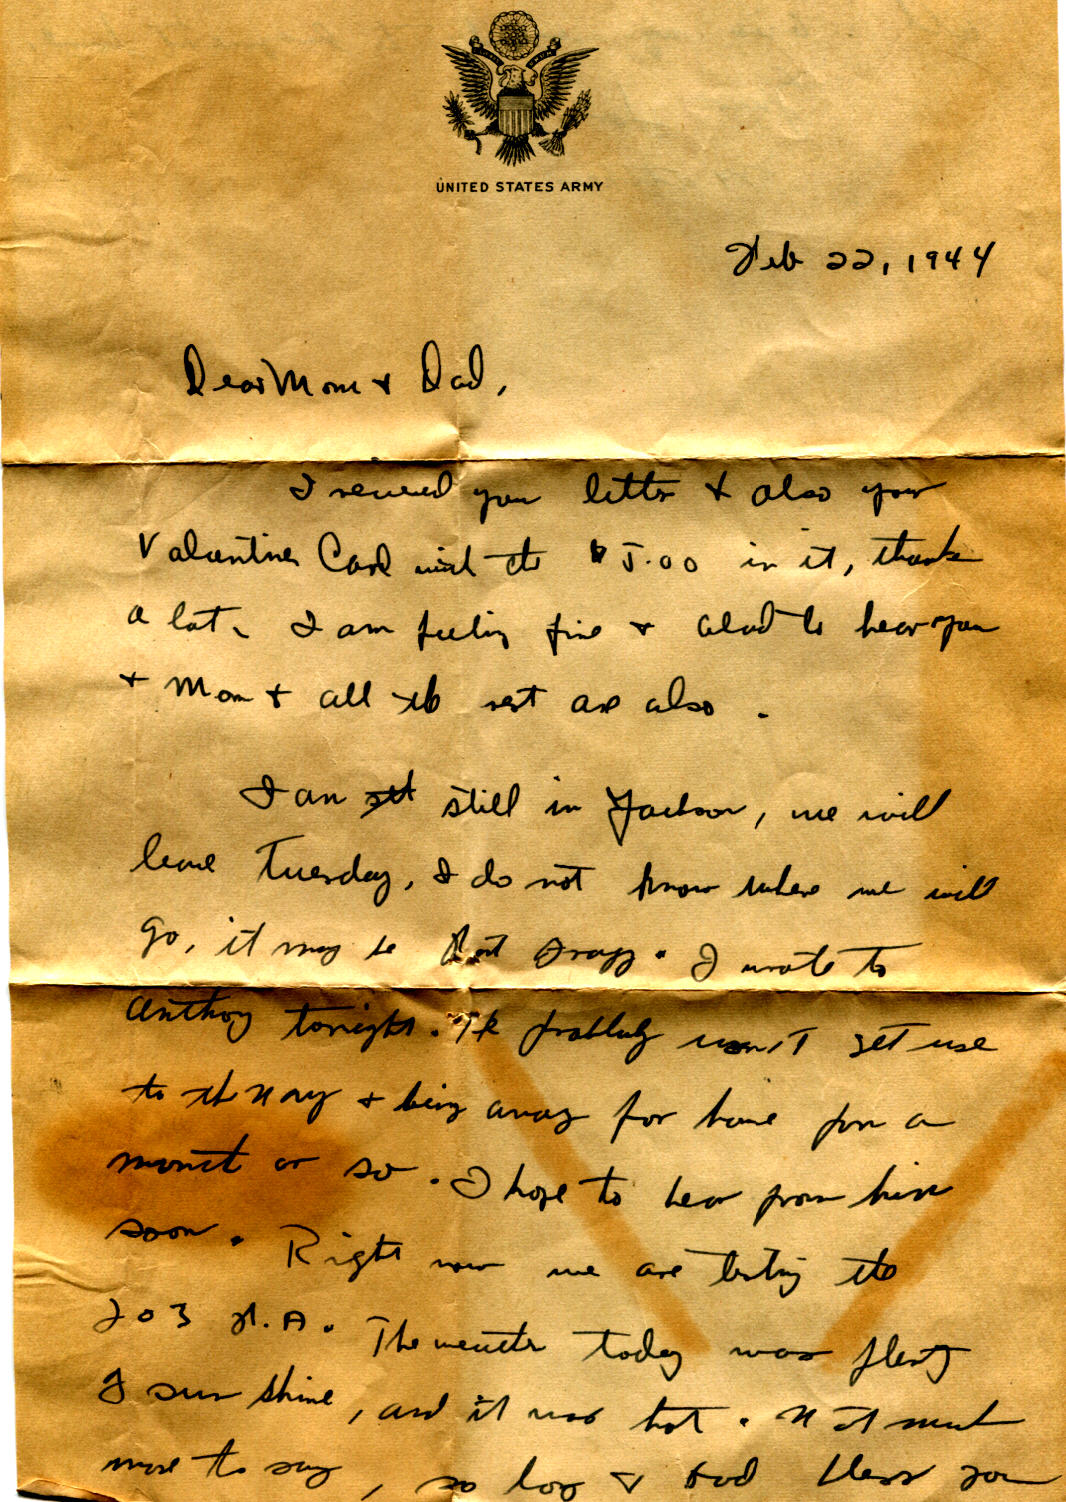 UNITED STATES ARMY
Feb 22, 1944
Dear Mom & Dad,
I received your letter & also your
Valentines Card with the $5.00 in it, thanks
a lot. I am feeling fine & glad to hear you
& Mom & all the rest are also.
I am still in Jackson, we will
leave Tuesday, I do not know where we will
go, it may be Fort Bragg. I wrote to
Anthony tonight. He probably won't get use
to the Navy & being away for home for a
month or so. I hope to hear from him
soon. Right now we are testing the
203 F.A. The weather today was plenty
of sun shine, and it was hot. Not much
more to say, so long & God bless you